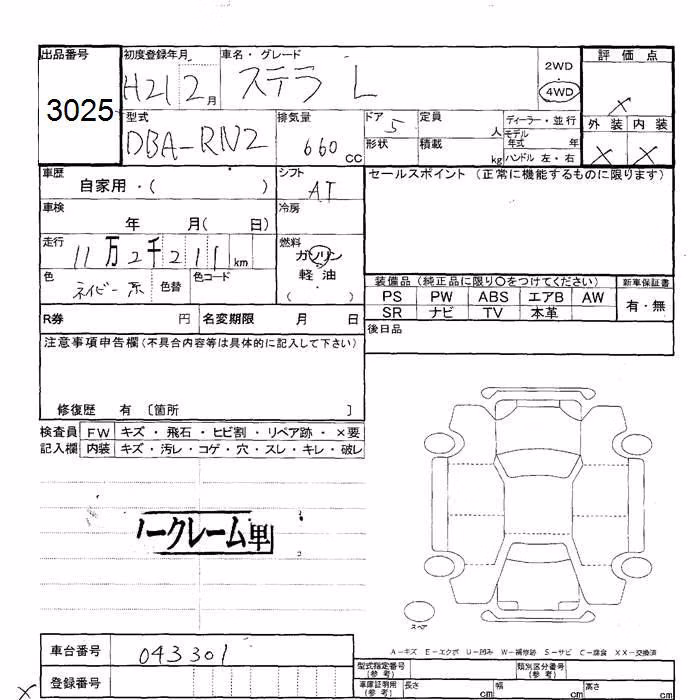 出品番号 初度登録年月 車名・グレード 評価点
3025 H21 2月 ステラ L 2WD 4WD
X
型式 排気量 ドア 定員 ディーラー・並行 外装 内装
DBA-RN2 660CC 5 人 モデル年式 年
形状 積載 kg ハンドル 左・右 X X
車歴 シフト セールスポイント (正常に機能するものに限ります)
自家用・( ) AT
車検 冷房
年 月( 日)
走行 燃料
11万2千211km ガソリン
軽油
色 色替 色コード ( )
ネイビー系
装備品 (純正品に限り○をつけてください) 新車保証書
PS PW ABS エアB AW 有・無
SR ナビ TV 本革
R券 円 名変期限 月 日
後日品
注意事項申告欄(不具合内容等は具体的に記入して下さい)
修復歴 有 〔箇所 〕
検査員 FW キズ・飛石・ヒビ割・リペア跡・×要
記入欄 内装 キズ・汚レ・コゲ・穴・スレ・キレ・破レ
ノークレーム車
スペア
A-キズ E-エクボ U-凹み W-補修跡 S-サビ C-腐食 XX-交換済
車台番号 043301
型式指定番号(参考) 類別区分番号(参考)
登録番号
車庫証明用(参考) 長さ cm 幅 cm 高さ cm
X